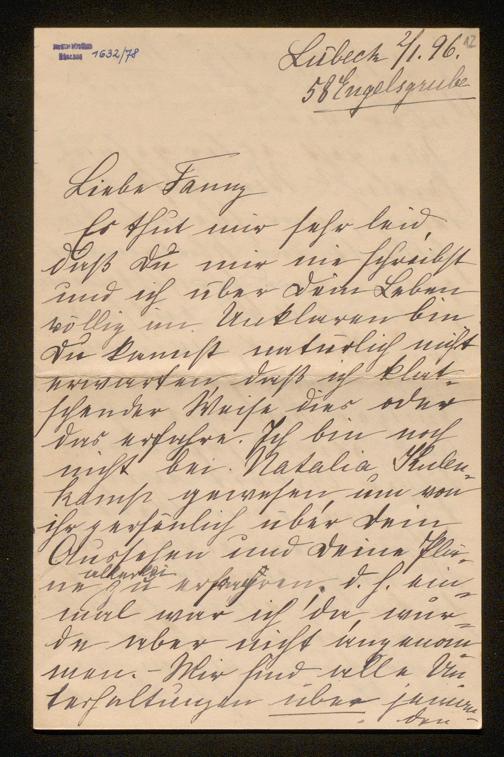 1632/78
12
Lübeck 2/1. 96.
58 Engelsgrube
Liebe Fanny
Es thut mir sehr leid,
daß Du mir nie schreibst
und ich über Dein Leben
völlig im Unklaren bin
Du kannst natürlich nicht
erwarten, daß ich klat-
schender Weise dies oder
das erfahre. Ich bin noch
nicht bei Natalia Kulen-
kamp gewesen, um von
ihr persönlich über Dein
Aussehen und Deine Plä-
ne allerlei zu erfahren. d. h. ein-
mal war ich da, wur-
de aber nicht angenom
men. - Mir sind alle Un
terhaltungen über jeman-
den